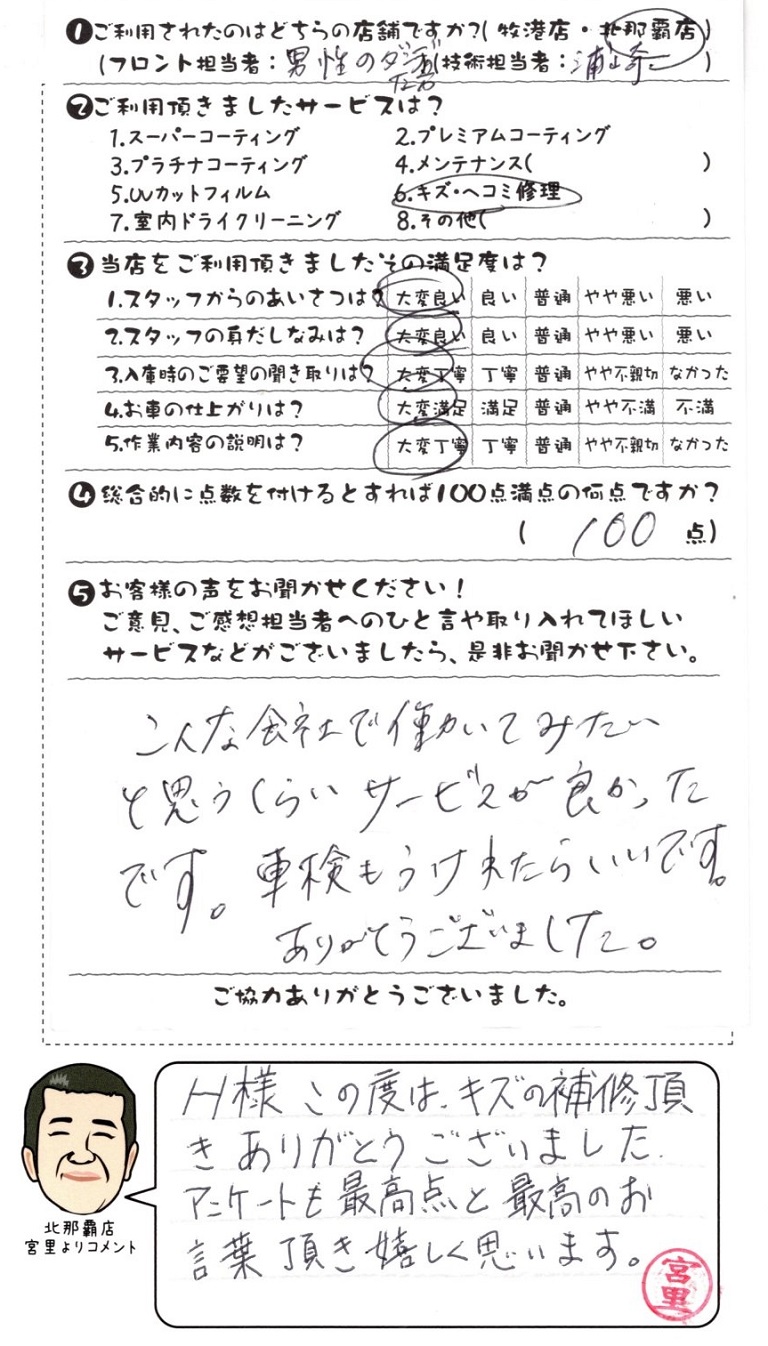 ❶ご利用されたのはどちらの店舗ですか?(牧港店・北那覇店)
(フロント担当者:男性の 技術担当者:浦崎 )
❷ご利用頂きましたサービスは?
1.スーパーコーティング 2.プレミアムコーティング
3.プラチナコーティング 4.メンテナンス( )
5.UVカットフィルム 6.キズ・ヘコミ修理
7.室内ドライクリーニング 8.その他( )
❸当店をご利用頂きましたその満足度は?
1.スタッフからのあいさつは? 大変良い 良い 普通 やや悪い 悪い
2.スタッフの身だしなみは? 大変良い 良い 普通 やや悪い 悪い
3.入庫時のご要望の聞き取りは? 大変丁寧 丁寧 普通 やや不親切 なかった
4.お車の仕上がりは? 大変満足 満足 普通 やや不満 不満
5.作業内容の説明は? 大変丁寧 丁寧 普通 やや不親切 なかった
❹総合的に点数を付けるとすれば100点満点の何点ですか?
( 100 点)
❺お客様の声をお聞かせください!
ご意見、ご感想担当者へのひと言や取り入れてほしい
サービスなどがございましたら、是非お聞かせ下さい。
こんな会社で働いてみたい
と思うくらいサービスが良かった
です。車検もうけれたらいいです。
ありがとうございました。
ご協力ありがとうございました。
H様 この度は、キズの補修頂
きありがとうございました.
アンケートも最高点と最高のお
言葉頂き嬉しく思います。
宮里
北那覇店
宮里よりコメント